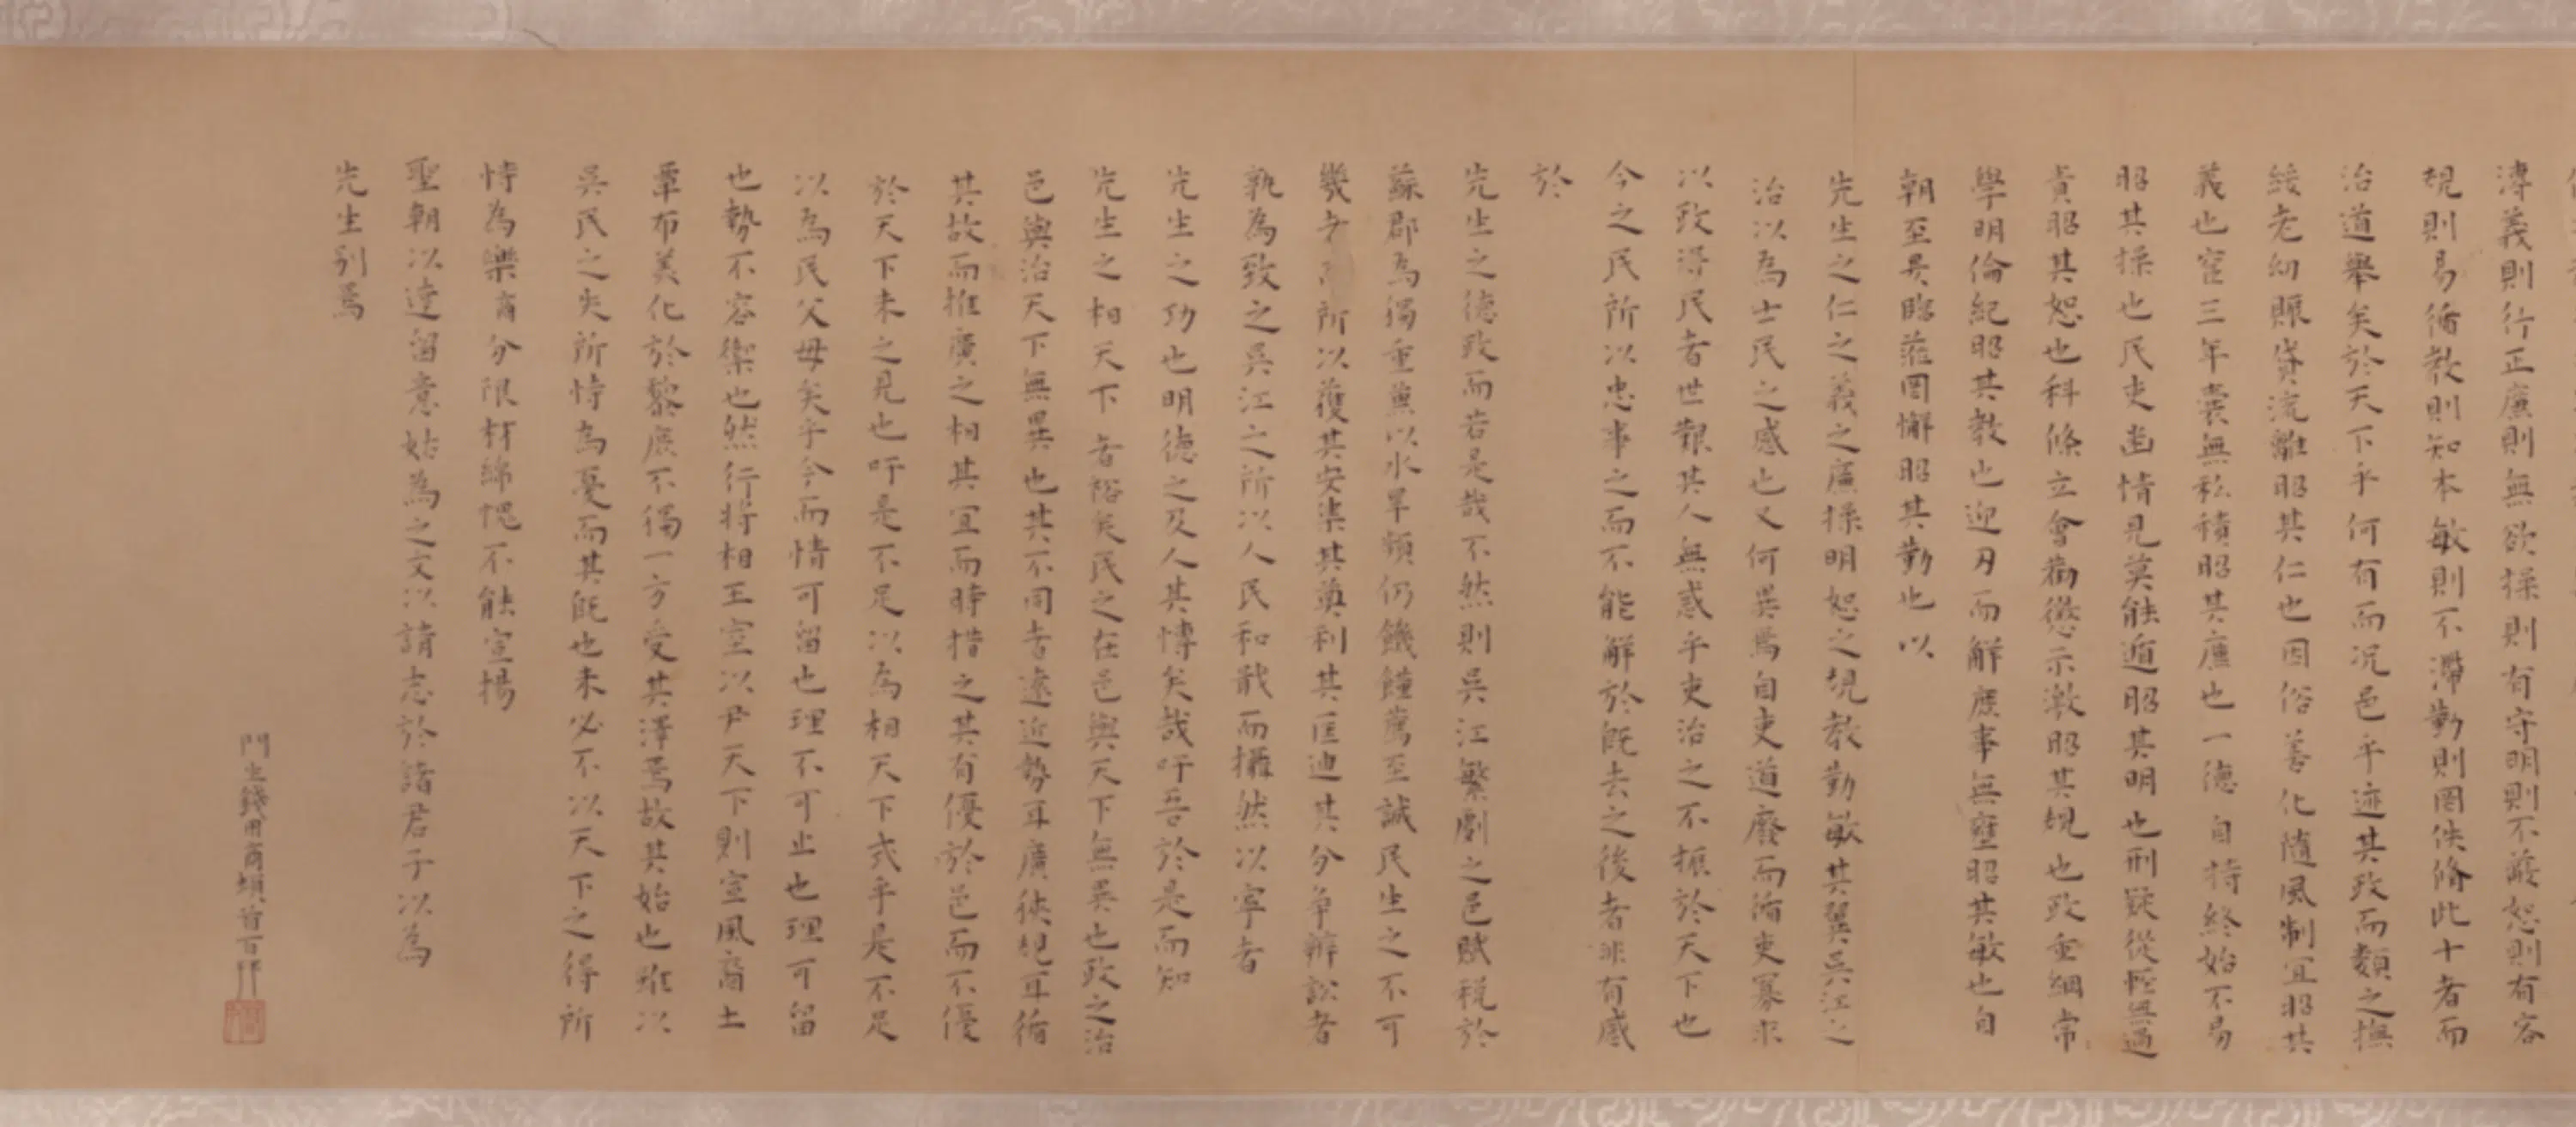 溥義則行正廉則無欲操則有守明則不蔽恕則有容
規則易循教則知本敏則不滯勤則罔佚脩此十者而
治道舉矣於天下乎何有而况邑乎迹其政而類之撫
綏老幼賑貸流離昭其仁也因俗善化隨風制宜昭其
義也宦三年橐無私積昭其廉也一德自持終始不易
昭其操也民吏齒情見莫能遁昭其明也刑疑從輕無過
責昭其恕也科條立會勸懲示激昭其規也政重綱常
學明倫紀昭其教也迎刃而解庶事無壅昭其敏也自
朝至昃臨蒞罔懈昭其勤也以
先生之仁之義之廉操明恕之規教勤敏其翼吳江之
治以為士民之感也又何異焉自吏道廢而循吏寡求
以政得民者世艱其人無惑乎吏治之不振於天下也
今之民所以忠事之而不能解於既去之後者非有感
於
先生之德政而若是哉不然則吳江繁劇之邑賦稅於
蘇郡為獨重薰以水旱頻仍饑饉薦至誠民生之不可
幾者所以獲其安集其奠利其匡迪其分爭辨訟者
孰為致之吳江之所以人民和戢而攝然以寧者
先生之功也明德之及人其博矣哉吁吾於是而知
先生之相天下者裕矣民之在邑與天下無異也政之治
邑與治天下無異也其不同者遠近勢耳廣狹規耳循
其故而推廣之相其宜而時措之其有優於邑而不優
於天下未之見也吁是不足以為相天下式乎是不足
以為民父母矣乎今而情可留也理不可止也理可留
也勢不容禦也然行將相王室以尹天下則宣風裔土
覃布美化於黎庶不獨一方受其澤焉故其始也雖以
吳民之失所恃為憂而其既也未必不以天下之得所
恃為樂商分限材綿愧不能宣揚
聖朝以達留意姑為之文以請志於諸君子以為
先生别焉
門生錢用商頓首百拜